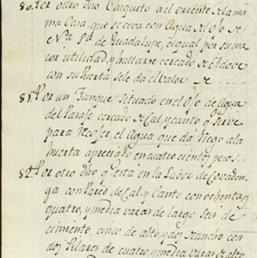 80. Por otro Dho Chiquito a el oriente de la mi
ma Casa que se ceva con Agua de el Ojo de
Nra. Sra. de Guadalupe, el qual por su me
cor utilidad, y hallarse cercado se le dove
con su huerta se le da el valor de
81. Por un Tanque Situado en el Ojo de Agua
del Paraje cercado de Cal, y canto que sirve
para Recojer el Agua que da riego a la
huerta apreciado en cuatrocientos pesos.
82. Por otro dho q. esta en la Labor de Covadon
ga con Pared de Cal, y Canto con ochenta y
quatro, y media varas de largo Seis de
cimiento, cinco de alto, y dos de ancho con
dos Pilares de cuatro, y media varas de alto